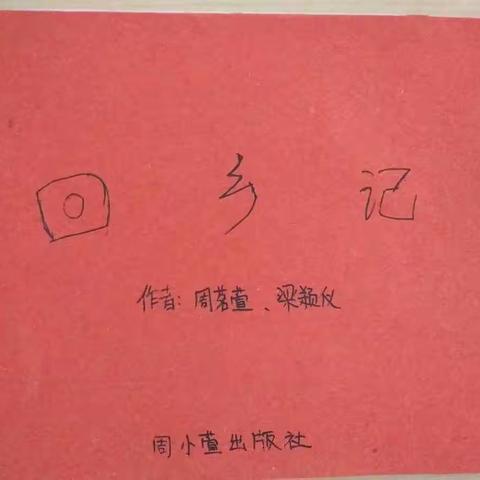 回乡记
作者:周茗萱、梁颖仪
周小萱出版社